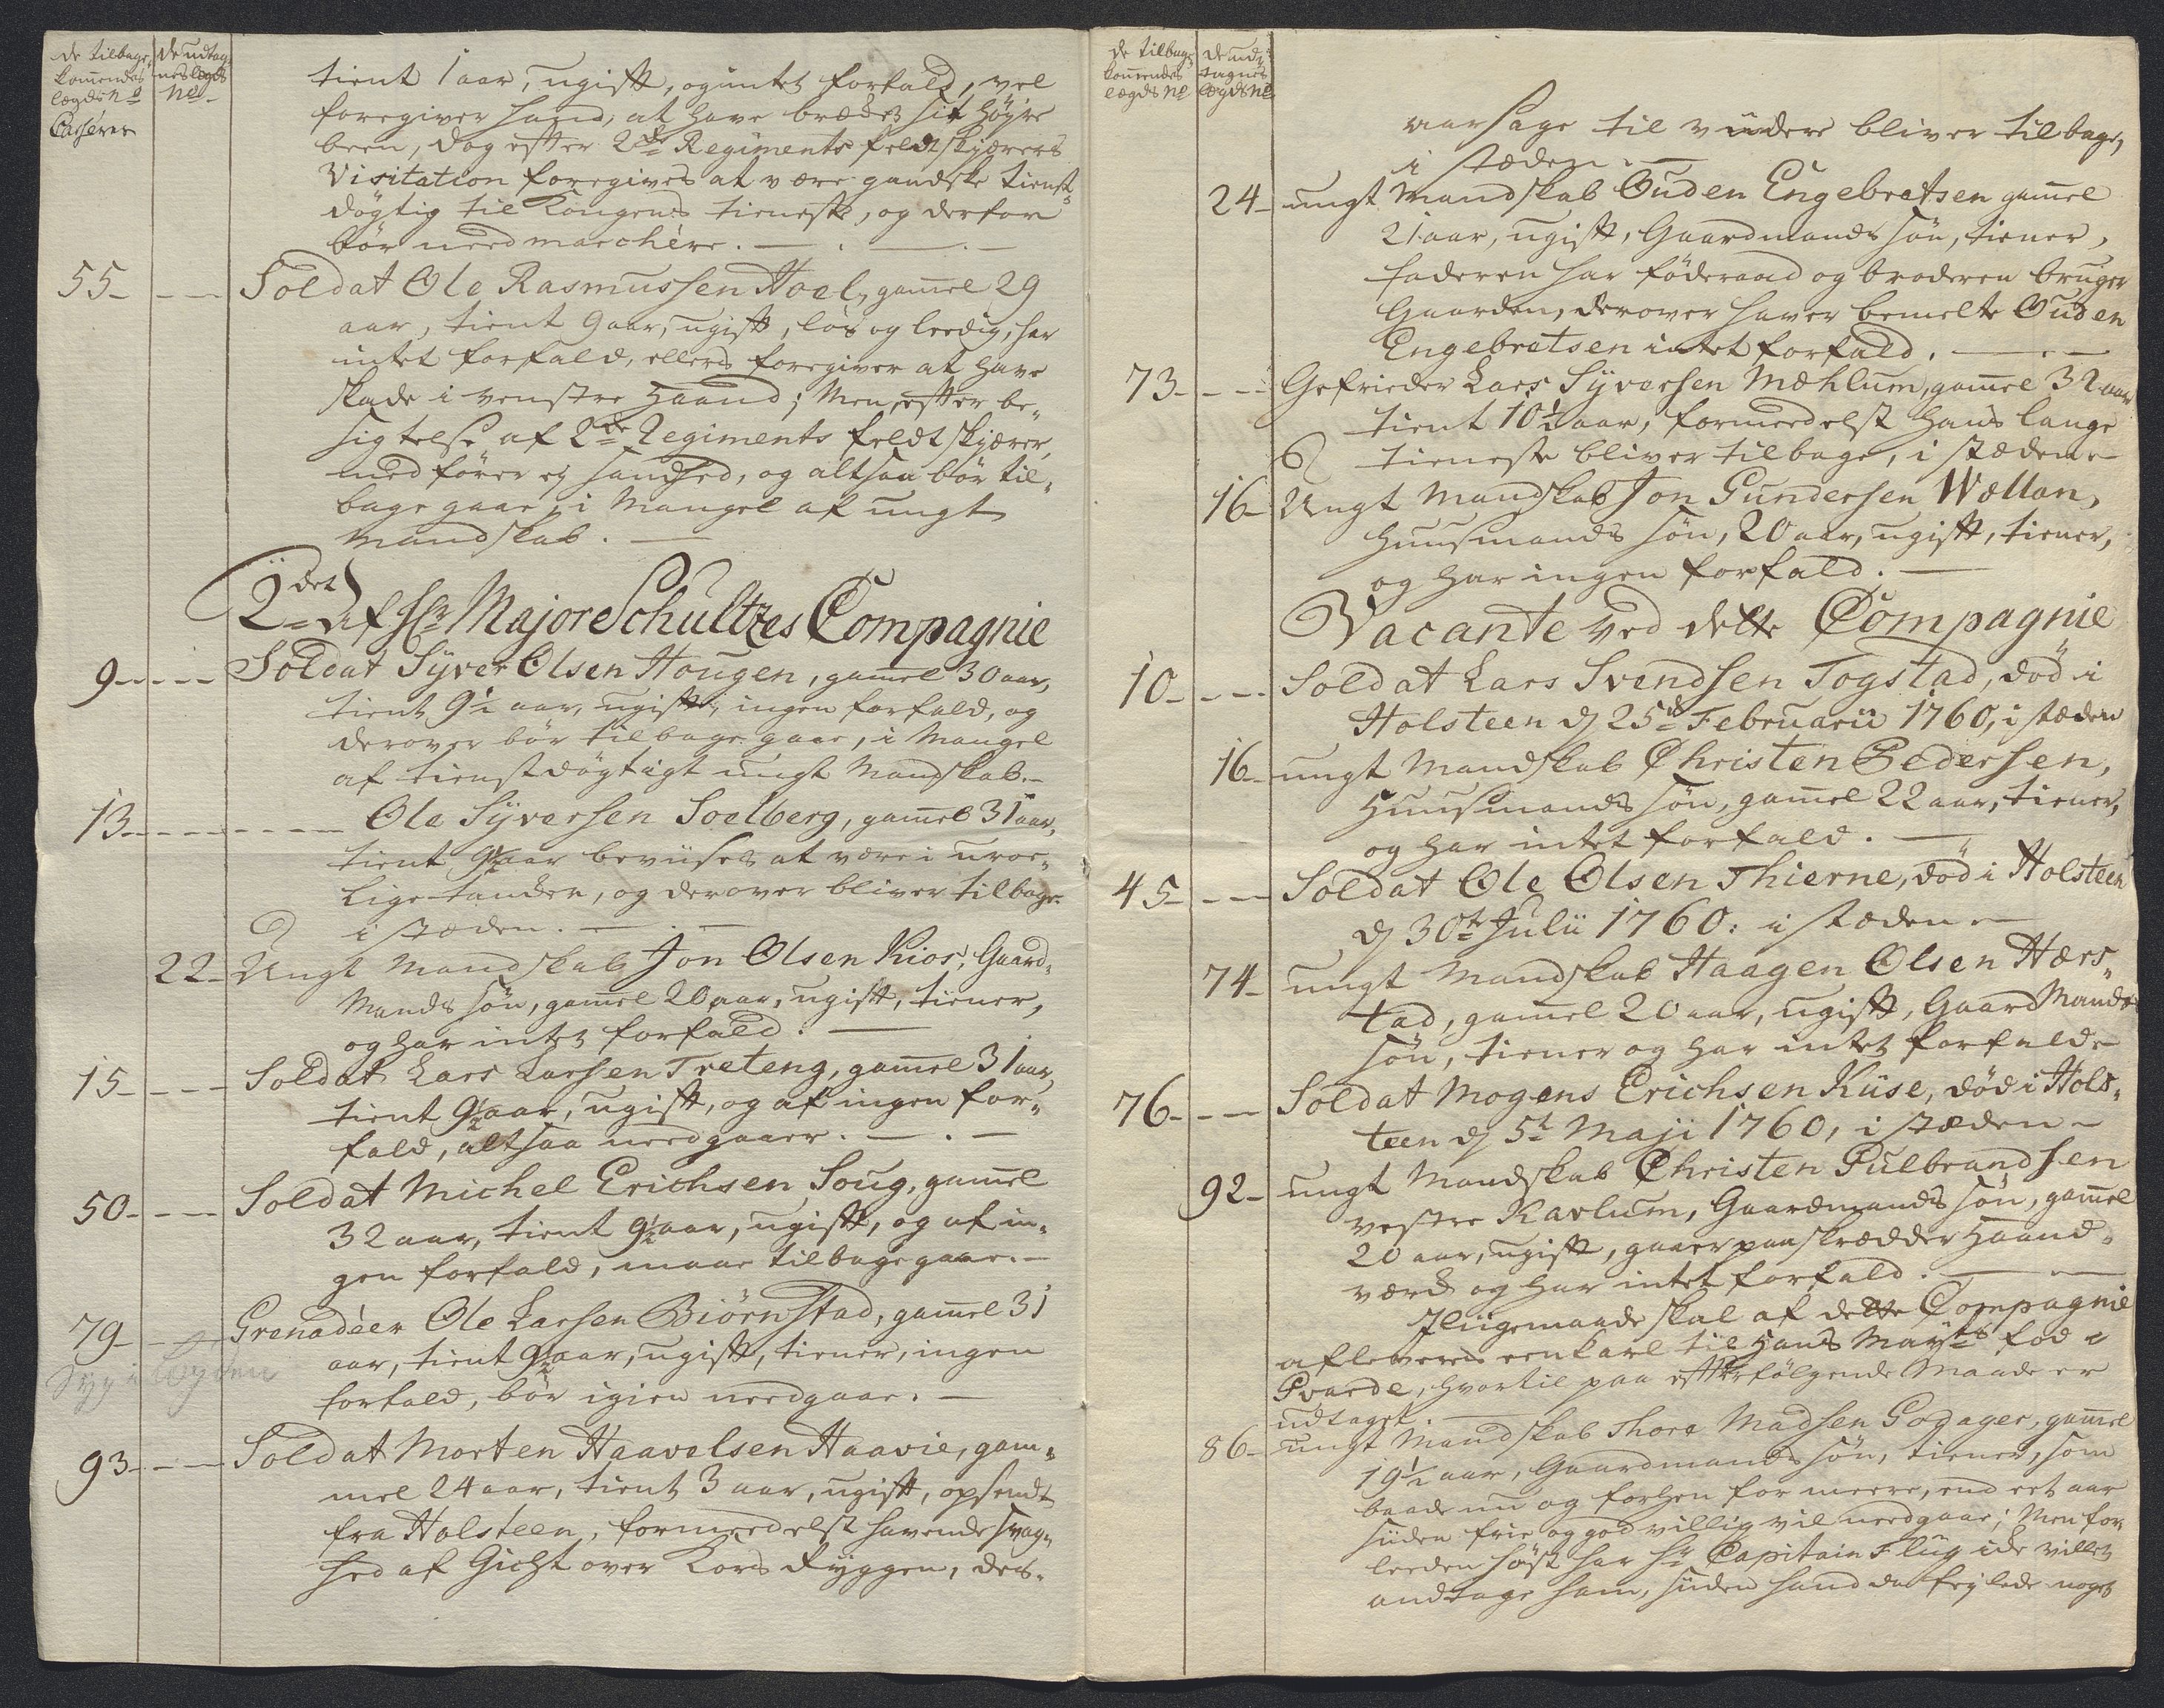 de tilbage
kommendes
lægds No
Casserer
de udtag
nes lægds
No
tient 1 aar, ugift, og intet forfald, vel
foregiver hand, at have brædet sit höÿre
been, dog efter 2de Regiments feldtskjærers
Visitation foregives at være gandske tienst
dögtig til Kongens tieneste, og derfor
bör need marchére.
55 Soldat Ole Rasmussen Hoel, gamel 29
aar, tient 9 aar, ugift, lös og leedig, har
intet forfald, ellers foregiver at have
skade i venstre Haand; Men efter be„
sigtelse af 2de Regiments feldtskjærer,
medförer eÿ sandhed, og altsaa bör til„
bage gaae, i Mangel af ungt
Mandskab.
2det af Hr Major Schultzes Compagnie
9 Soldat Sÿver Olsen Hougen, gamel 30 aar,
tient 9½ aar, ugift, ingen forfald, og
derover bör tilbage gaae, i Mangel
af tienstdögtigt ungt Mandskab.
13 Ole Sÿversen Soelberg, gamel 31 aar,
tient 9½ aar beviises at være i uroe„
lige tanker, og derover bliver tilbage
i stæden.
22 Ungt Mandskab Jon Olsen Kios, Gaard„
Mands sön, gamel 20 aar, ugift, tiener,
og har intet forfald.
15 Soldat Lars Larsen Treteng, gamel 31 aar,
tient 9½ aar, ugift, og af ingen for„
fald, altsaa needgaaer.
50 Soldat Michel Erichsen Soug, gamel
32 aar, tient 9½ aar, ugift, og af in„
gen forfald, maae tilbage gaae.
79 Grenadéer Ole Larsen Biörnstad, gamel 31
aar, tient 9½ aar, ugift, tiener, ingen
Syg i Lægden
forfald, bör igien needgaae.
93 Soldat Morten Haavelsen Haavie, gam„
mel 24 aar, tient 3 aar, ugift, opsendt
fra Holsteen, formedelst havende svag„
hed af Gicht over Kors Ryggen, des„
de tilbage
kommendes
lægds No
de ud„
tagnes
lægds No
aarsage til viidere bliver tilbage,
i stæden.
24 ungt Mandskab Ouden Engebretsen gamel
21 aar, ugift, Gaardmands sön, tiener,
faderen har föderaad og broderen bruger
Gaarden, derover haver bemelte Ouden
Engebretsen intet forfald.
73 Gefrieder Lars Sÿversen Mæhlum, gamel 32 aar
tient 10½ aar, formeedelst hans lange
tieneste bliver tilbage, i stæden
16 Ungt Mandskab Jon Gundersen Wollan,
Huusmands sön, 20 aar, ugift, tiener,
og har ingen forfald.
Vacante ved dette Compagnie
10 Soldat Lars Svendsen Togstad, död i
Holsteen d 25de Februarii 1760, i stæden
16 ungt Mandskab Christen Pedersen,
Huusmands sön, gamel 22 aar, tiener,
og har intet forfald.
45 Soldat Ole Olsen Thierne, död i Holsteen
d 30te Julii 1760: i stæden
74 ungt Mandskab Haagen Olsen Hærs„
tad, gamel 20 aar, ugift, Gaard Mands
sön, tiener og har intet forfald
76 Soldat Mogens Erichsen Kiise, död i Hols„
teen d 5te Maji 1760, i stæden
92 ungt Mandskab Christen Gulbrandsen
vestre Karlum, Gaardmands sön, gamel
20 aar, ugift, gaaer paa skrædder Haand„
værk og har intet forfald.
Iliigemaade skal af dette Compagnie
afleveres een karl til Hans Mayts fod
Gvarde, hvortil paa efterfölgende Maade er
udtaget.
86 ungt Mandskab Thore Madsen Godager, gamel
19½ aar, Gaardmands sön, tiener, som
baade nu og forhen for meere, end eet aar
siiden frie og godvillig vil needgaae; Men for„
leeden höst har Hr Capitain Flüg icke villet
andtage ham, siiden hand da feÿlede noget